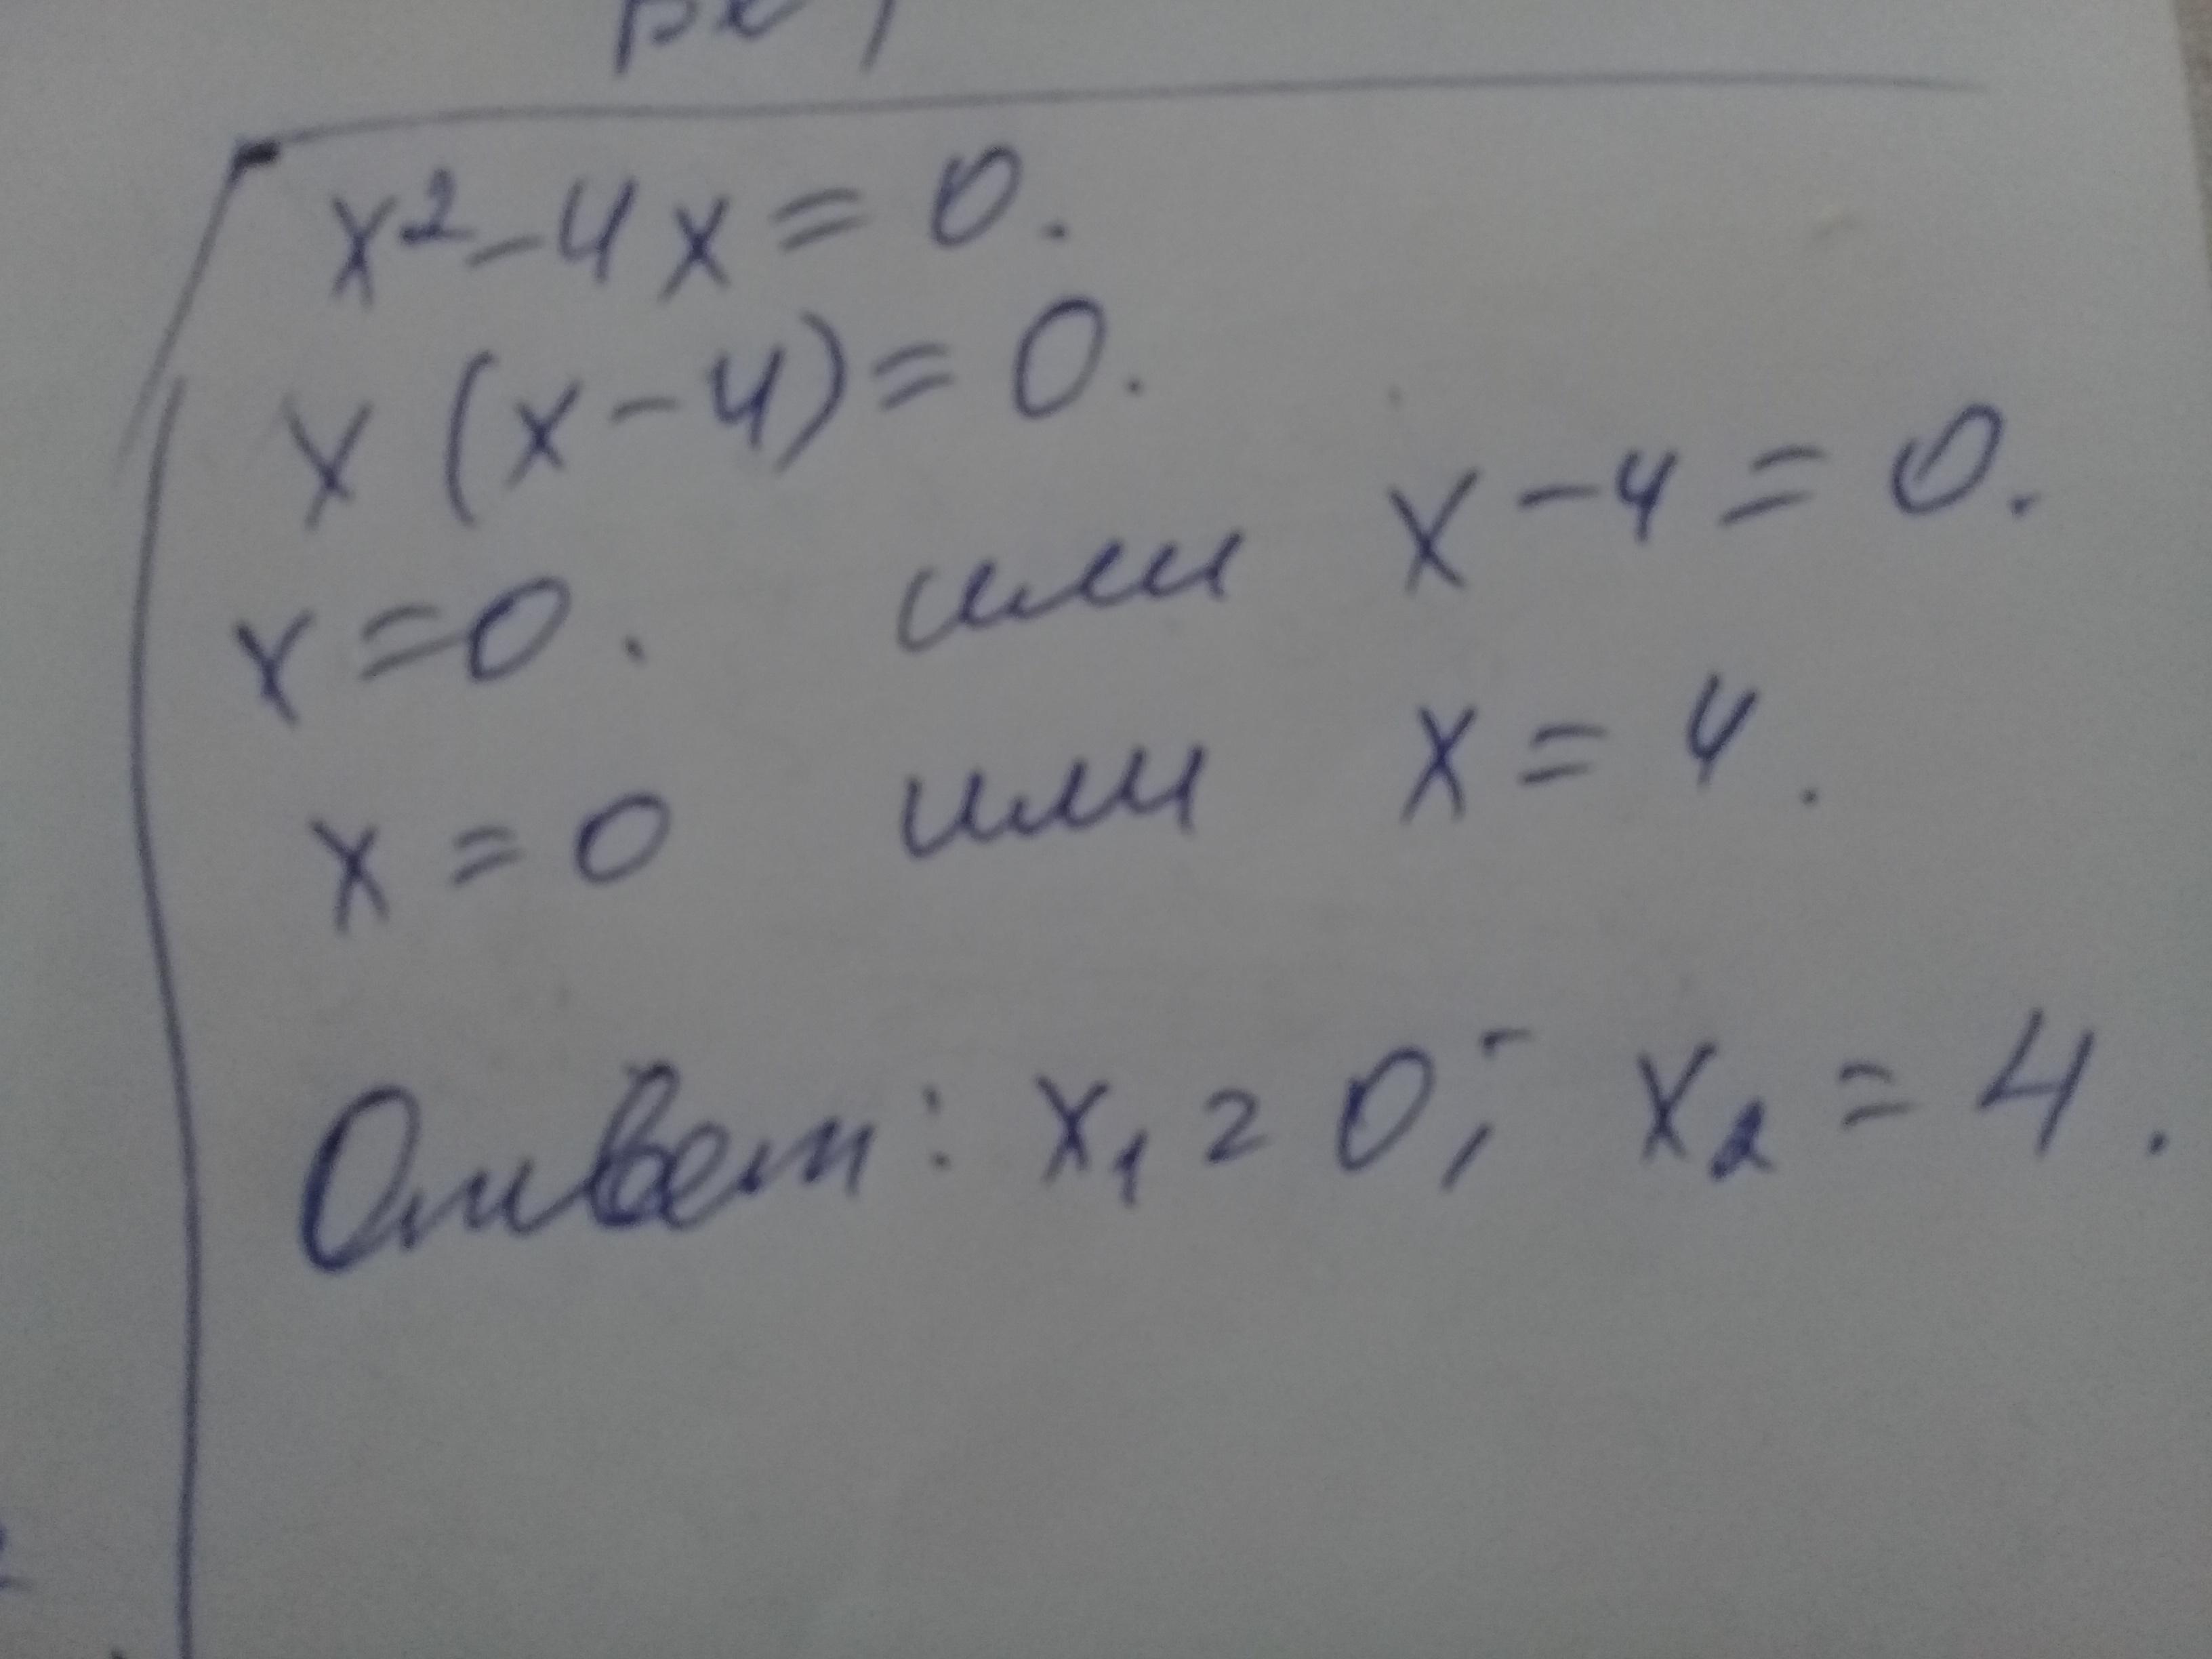 x² - 4x = 0.
x (x - 4) = 0.
x = 0. или x - 4 = 0.
x = 0 или x = 4.
Ответ: x₁ = 0; x₂ = 4.